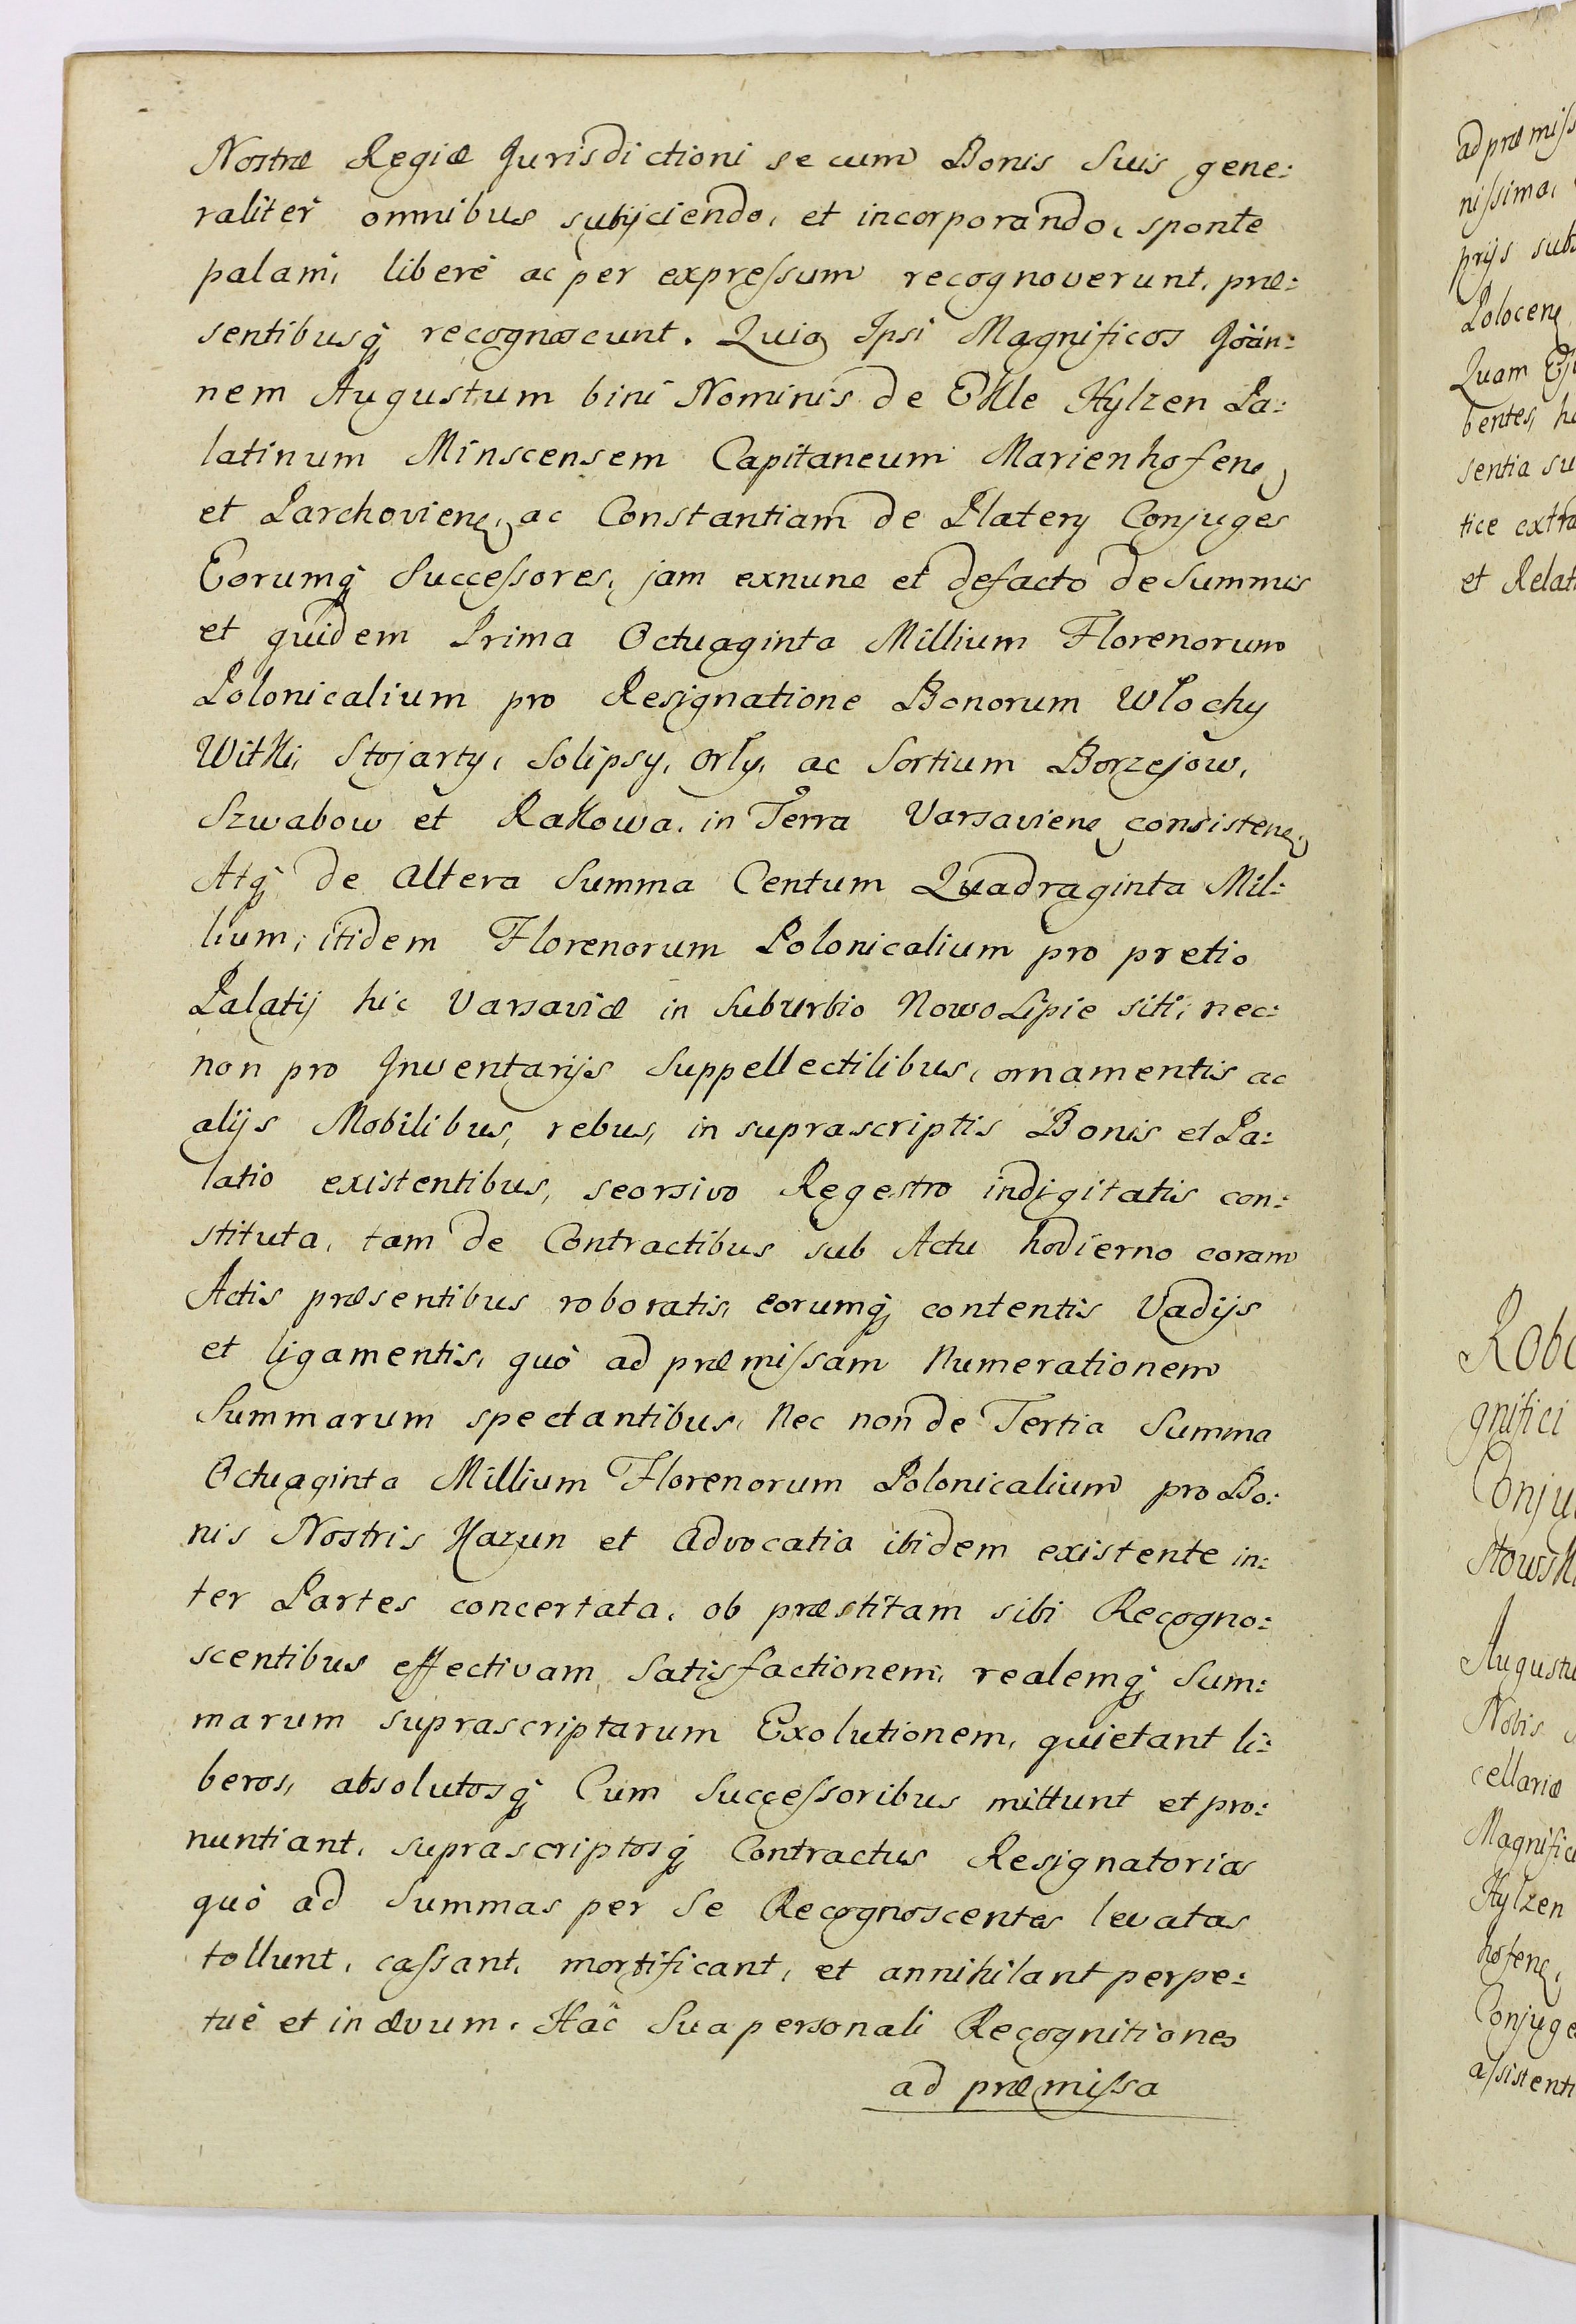 Nostræ Regiæ Jurisdictioni se cum Bonis Suis gene:
raliter omnibus subijciendo, et incorporando, sponte
palam, liberè ac per expreſsum recognoverunt, præ:
sentibusq́ recognoscunt. Quia Ipsi Magnificos Joán:
nem Augustum bini Nominis de Ekle Hylzen Pa:
latinum Minscensem Capitaneum Marienhofen
et Parchovien, ac Constantiam de Platery Conjuges
Eorumq́ Succeſsores, jam exnunc et defacto de Summis
et quidem Prima Octuaginta Millium Florenorum
Polonicalium pro Resignatione Bonorum Włochy
Witki, Stojarty, Solipsy, Orły, ac Sortium Borzejow,
Szwabow et Rakowa, in Terra Varsavien consisten,
Atq́ de altera Summa Centum Quadraginta Mil:
lium, itidem Florenorum Polonicalium pro pretio
Palatij hic Varsaviæ in Suburbio Nowolipie siti, nec:
non pro Inventarijs Suppellectilibus, ornamentis ac
alijs Mobilibus, rebus, in suprascriptis Bonis et Pa:
latio existentibus, seorsivo Regestro indigitatis con:
stituta, tam de Contractibus sub Actu hodierno coram
Actis præsentibus roboratis, eorumq́ contentis Vadijs
et ligamentis, quò ad præmiſsam Numerationem
Summarum spectantibus, Nec non de Tertia Summa
Octuaginta Millium Florenorum Polonicalium pro Bo:
nis Nostris Kazun et Advocatia ibidem existente in:
ter Partes concertata, ob præstitam sibi Recogno:
scentibus effectivam Satisfactionem, realemq́ Sum:
marum suprascriptarum Exolutionem, quietant li:
beros, absolutosq́ Cum Succeſsoribus mittunt et pro:
nuntiant, suprascriptosq́ Contractus Resignatorias
quò ad Summas per Se Recognoscentes levatas
tollunt, caſsant, mortificant, et annihilant perpe:
tuè et in ævum. Hac Sua personali Recognitione
ad præmiſsa
ad præmiſs
niſsima,
prijs sub
Polocen
Quam
bentes,
sentia su
tice extra
et Relat
Robo
gnifici
Conju
stowsk
Augustu
Nobis
cellariæ
Magnific
Hylzen
hofen,
Conjuge
aſsistenti